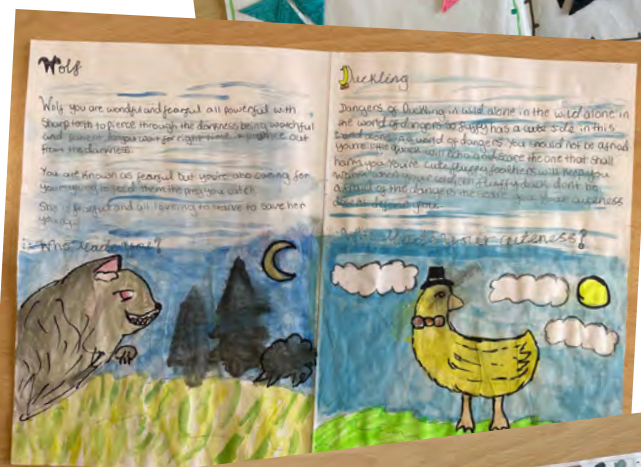 Wolf
Wolf you are wondful and fearful all powerful with
sharp teeth to pierce through the darkness being watchful
and you wait for right out
from the darkness.
You are known as fearful but you're also caring for
your young to feed them the prey you catch
She is fearful and all loving to to save her
young.
Who made you?
Duckling
Dangers of Duckling in wild alone in the wild alone in
the world of dangers so fluffy has a cute side in this
world of dangers. You should not be afraid
you're little quack will echo and scare the one that shall
harm you. You're cute fluffy feathers will keep you
warm when your cold in fluffy duck don't be
afraid of the dangers the scare you your cuteness
defends you.
cuteness?